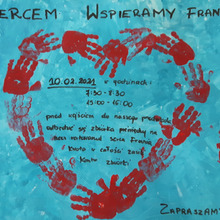 ERCEM WSPIERAMY FRAN
10.02.2021 w godzinach:
7:30 - 8:30
15:00 - 16:00
przed wejściem do naszego
odbędzie się zbiórka pieniędzy na
serca Frania
Kwota w całości
zbiórki
ZAPRASZAM